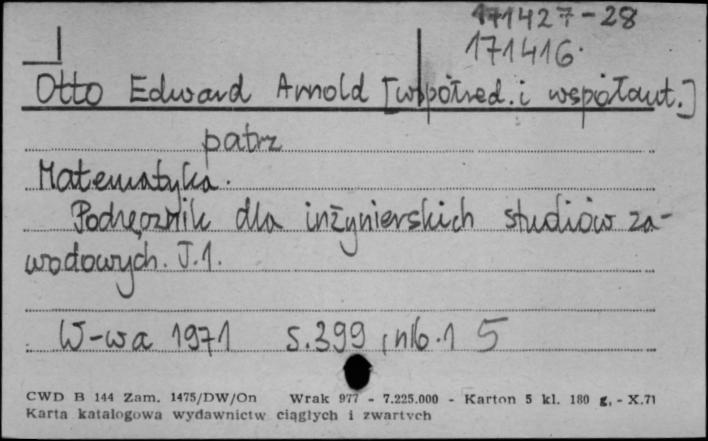 171427-28
171416.
Otto Edward Arnold [współred. i współaut.]
patrz
Matematyka.
Podręcznik dla inżynierskich studiów za-
wodowych. T.1.
W-wa 1971 s.399, nlb.1 5
CWD B 144 Zam. 1475/DW/On Wrak 977 - 7.225.000 - Karton 5 kl. 180 g. - X.71
Karta katalogowa wydawnictw ciągłych i zwartych